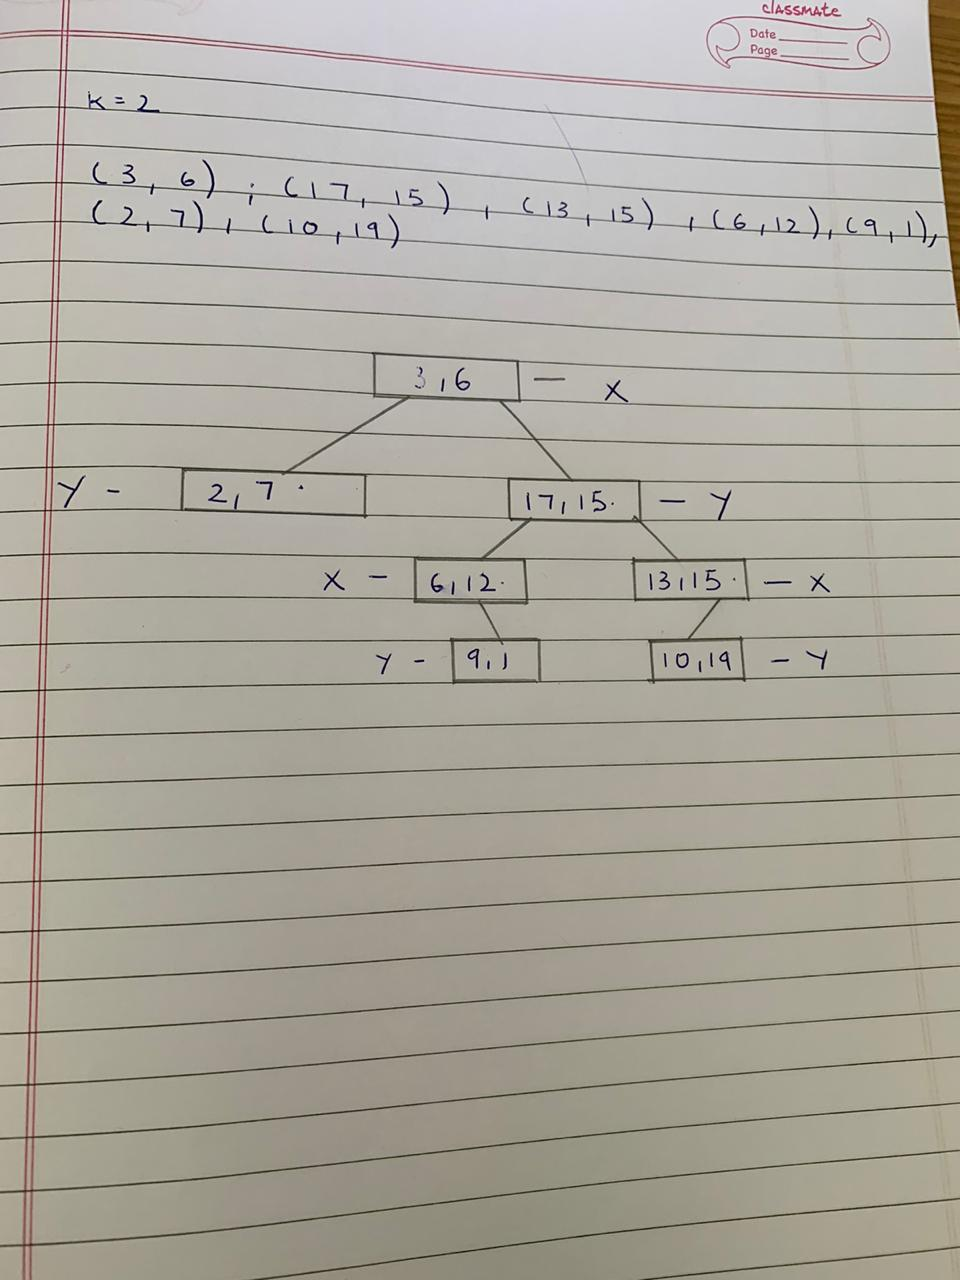 classmate
Date
Page
K = 2
(3, 6), (17, 15), (13, 15), (6, 12), (9, 1),
(2, 7), (10, 19)
3, 6 — X
Y - 2, 7 17, 15 — Y
X - 6, 12 13, 15 — X
Y - 9, 1 10, 19 - Y